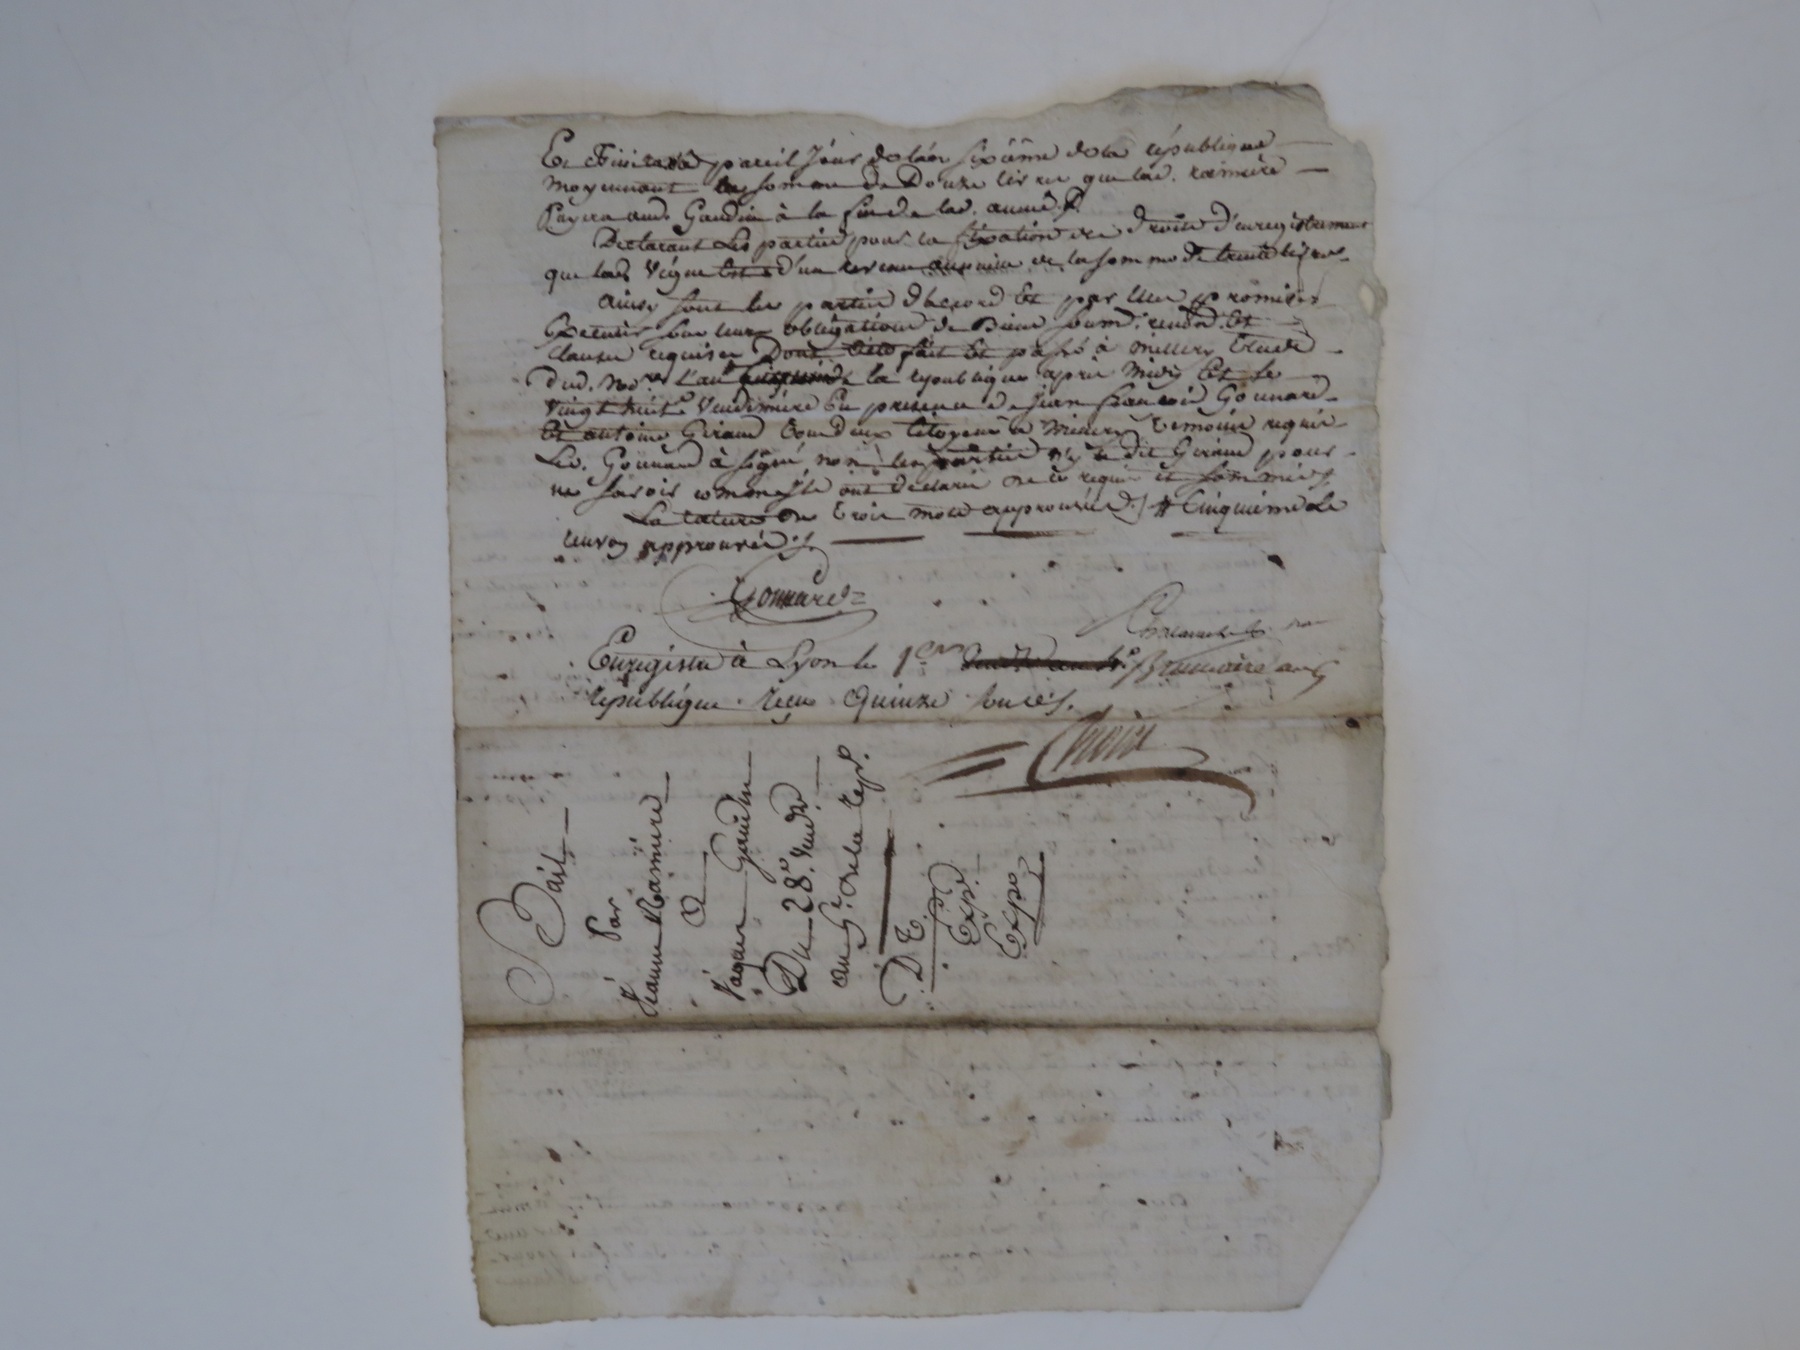 Et finira à pareil jour de l'an sixième de la république
moyennant la somme de Douze livres que lad. Ramière
Payera aud. Gaudin à la fin de lad. année ./.
Declarant les parties pour la fixation des droits d'enregistrement
que lad. vigne est d'un revenu de la somme de trente livres
ainsy sont les parties d'accord Et par elles promis
Executer sur leurs obligations de Biens soumis. renon. Et
clauses requises Dont acte fait Et passé à Millery Etude
dud. no.re l'an la republique après midy Et le
vingt huit.e Vendémiaire En presence de jean françois Gonnard
Et antoine Giraud tous deux Citoyens à Millery témoins requis
Led. Gonnard à signé non les parties n'y le dit Giraud pour
ne savoir comme ils ont declarés de ce requis et sommés ./.
La rature de trois mots approuvée ./. # Cinquième de
approuvée ./.
Gonnard
Enregistré à Lyon le 1er Brumaire an 5
République. Reçu Quinze sous
Bail
Par
Jeanne Ramière
à
Jaque Gaudin
Du 28e. Vendre.
an 5e. de la Repe.
D E.
Expe.
Expo